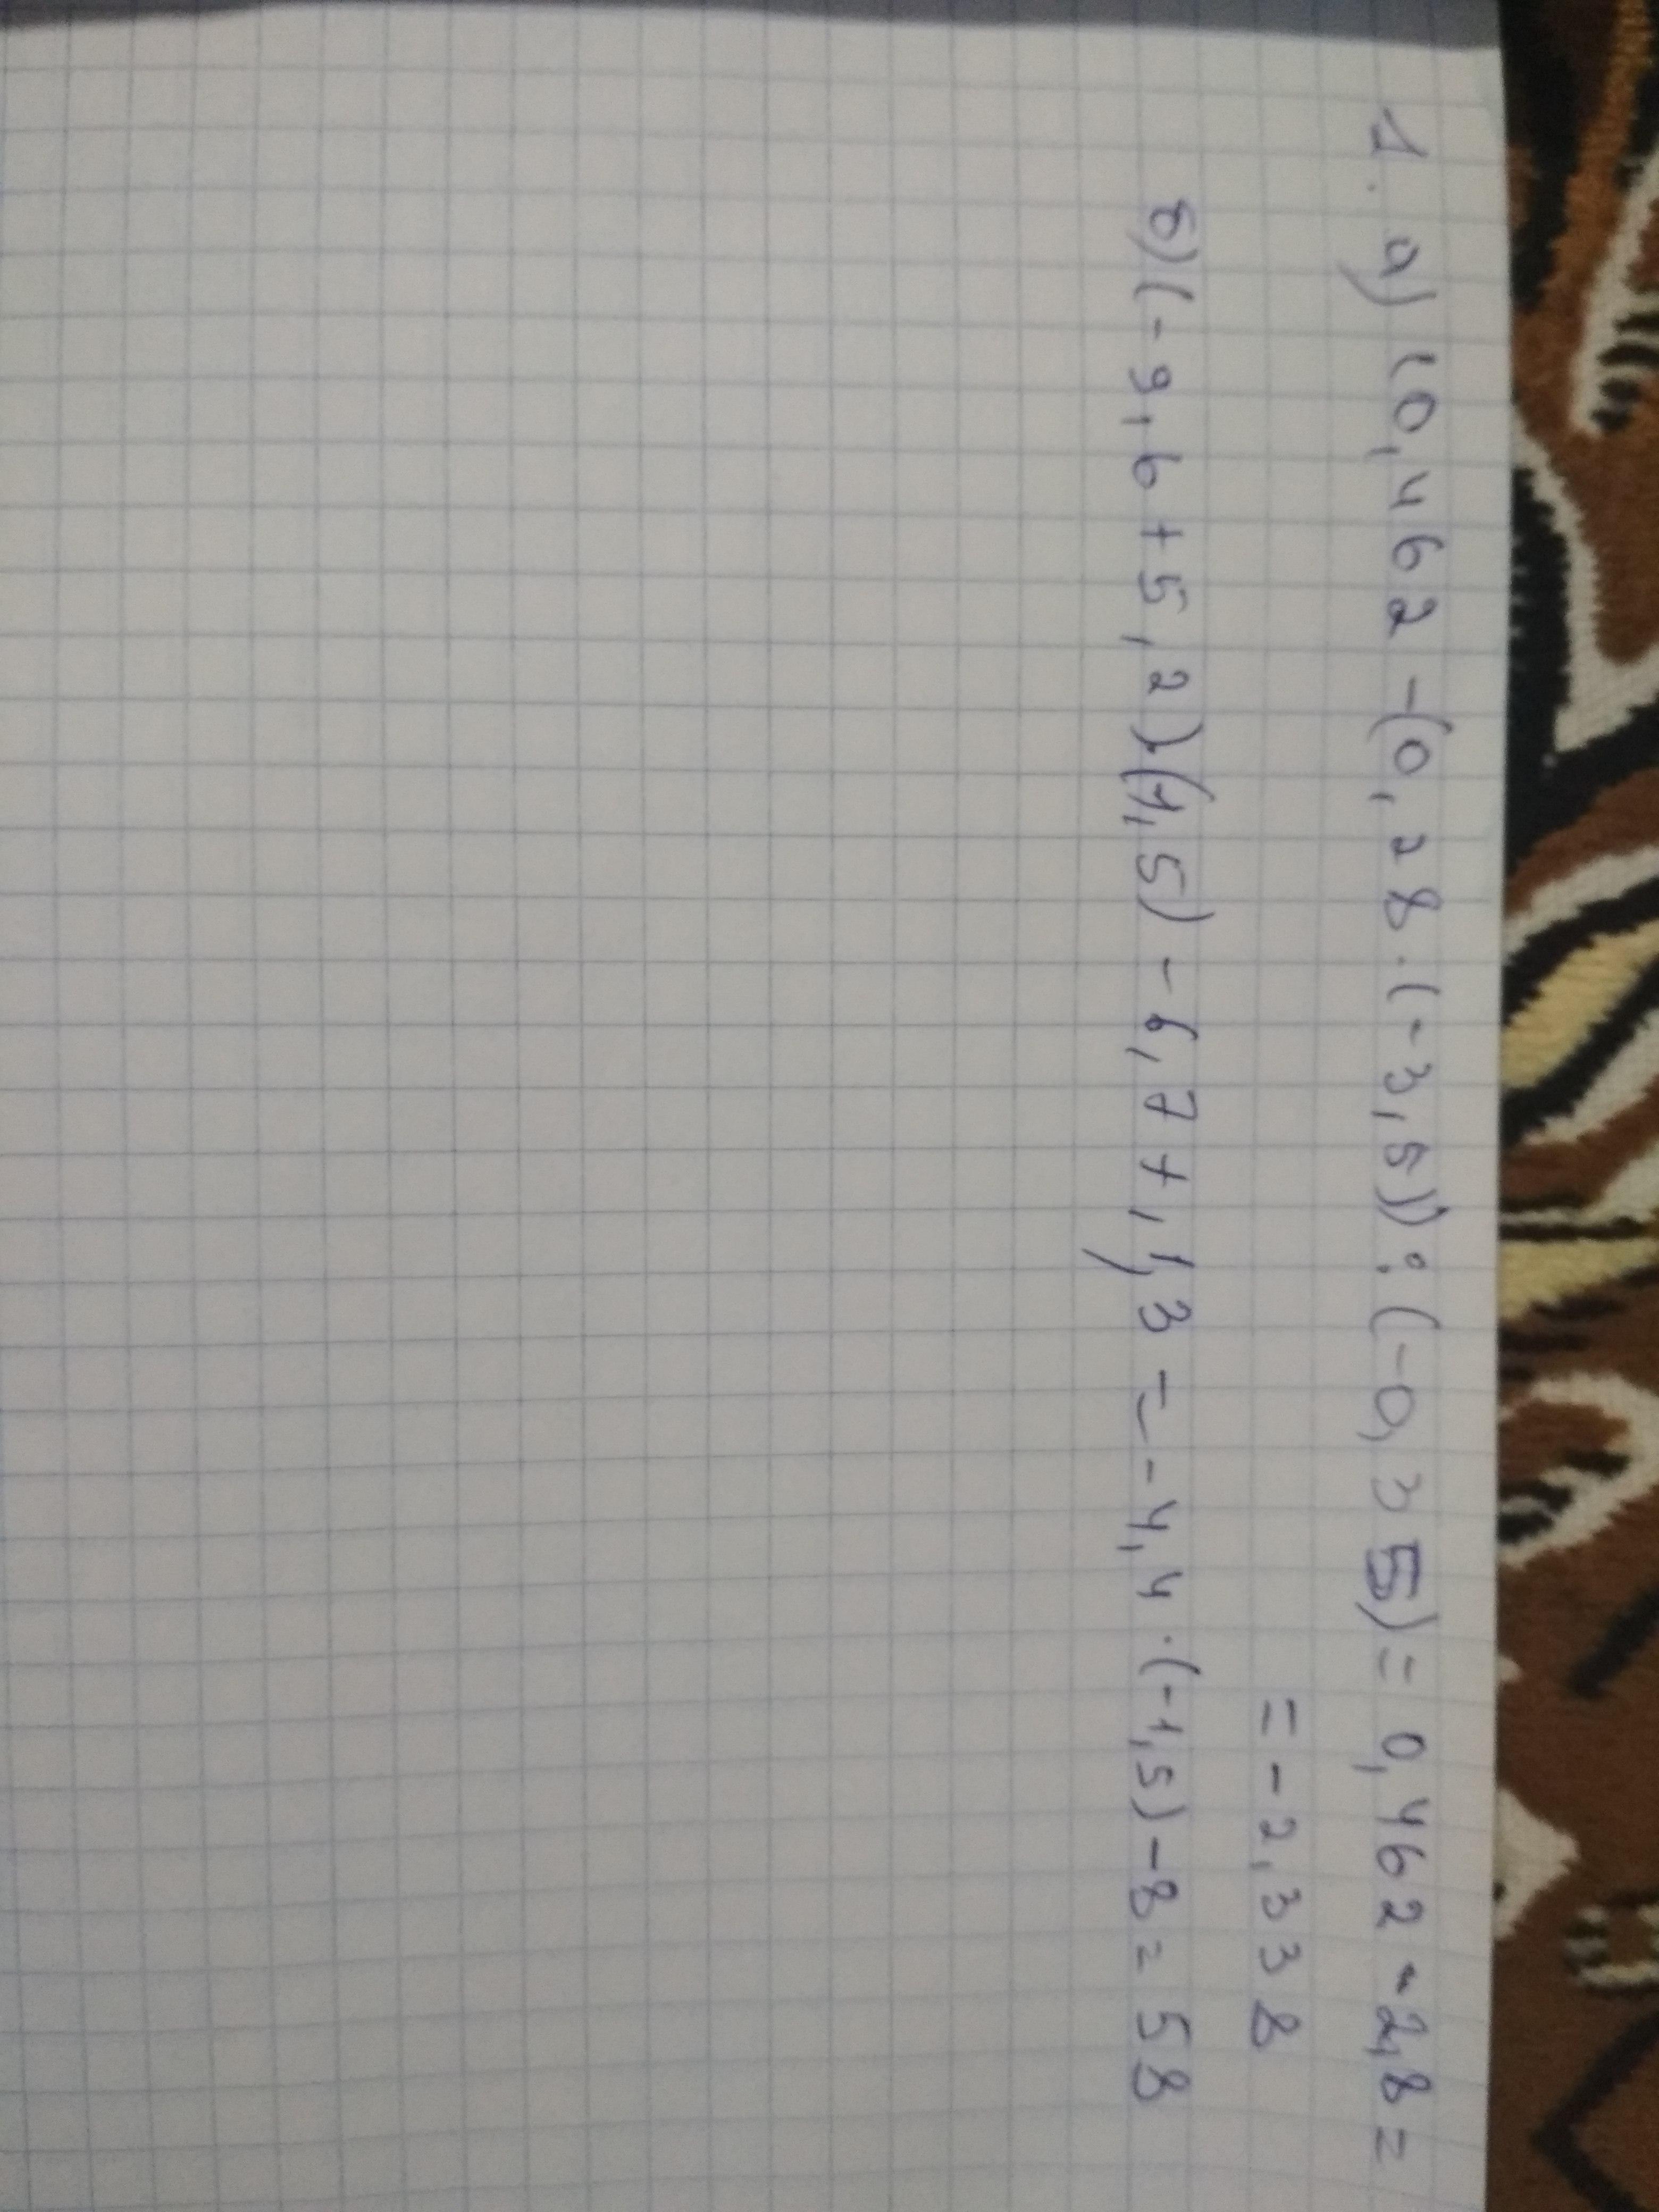 1. а) (0,462 -(0,28·(-3,5)) : (-0,35) = 0,462 - 2,8 =
= -2,338
б) (-9,6 + 5,2)·(1,5) - 6,7 + 1,3 = -4,4·(-1,5) - 8 = 58